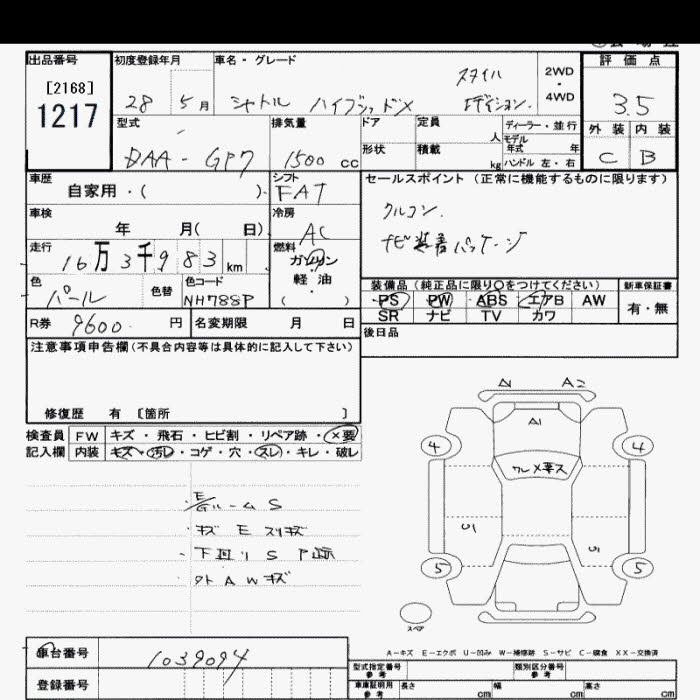 出品番号
[2168]
1217
初度登録年月
28 5月
車名・グレード
シャトル ハイブリッドX スタイルエディション
2WD
・
4WD
評価点
3.5
外装 内装
C B
型式
DAA-GP7
排気量
1500 cc
ドア 定員 人
形状 積載 kg
ディーラー・並行
モデル年式 年
ハンドル 左・右
車歴
自家用・( )
シフト
FAT
車検
年 月( 日)
冷房
AC
走行
16万3千983 km
燃料
ガソリン
軽・油
( )
色
パール
色替
色コード
NH788P
R券 9600 円
名変期限 月 日
セールスポイント (正常に機能するものに限ります)
クルコン.
ナビ装着パッケージ
装備品(純正品に限り○をつけてください)
PS PW ABS エアB AW
SR ナビ TV カワ
新車保証書
有・無
後日品
注意事項申告欄(不具合内容等は具体的に記入して下さい)
修復歴 有 [箇所 ]
検査員 FW キズ・飛石・ヒビ割・リペア跡・×要
記入欄 内装 キズ・汚レ・コゲ・穴・スレ・キレ・破レ
E/Gルーム S
キズ E スリキズ
下廻り S P跡
外 A W キズ
A1 A2
A1
4 4
U1
5 5
スペア
A-キズ E-エクボ U-凹み W-補修跡 S-サビ C-腐食 XX-交換済
車台番号 1039094
登録番号
型式指定番号
参考
類別区分番号
参考
車庫証明用
参考
長さ cm 幅 cm 高さ cm